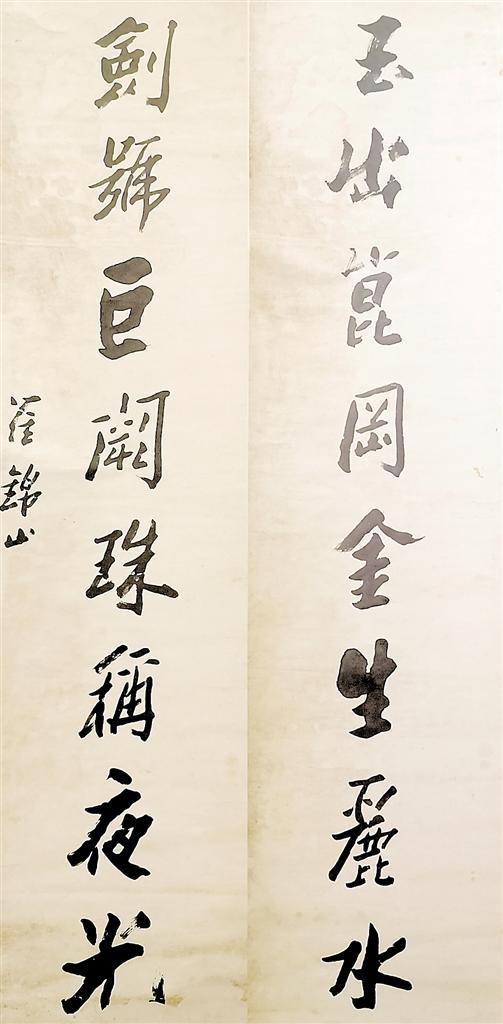 玉出崑岡金生麗水
劍號巨闕珠稱夜光
錦山